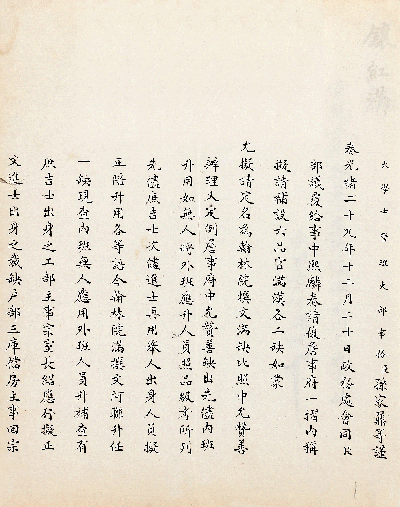 大學士管理吏部事務臣孫家鼐等謹
奏光緒二十九年十二月二十日政務處會同臣
部議覆給事中熙麟奏請詹事府一摺內稱
擬請補設六品官滿漢各二缺如蒙
允擬請定名為翰林院撰文滿缺比照中允贊善
辦理又定例詹事府中允贊善缺出先儘內班
升用如無人將外班應升人員照品級考所列
先儘庶吉士次儘進士再用舉人出身人員擬
正陪升用各等語今翰林院滿撰文阿聯升任
一缺現查內班無人應用外班人員升補查有
庶吉士出身之工部主事宗室長紹應行擬正
文進士出身之裁缺戶部三庫房主事宗